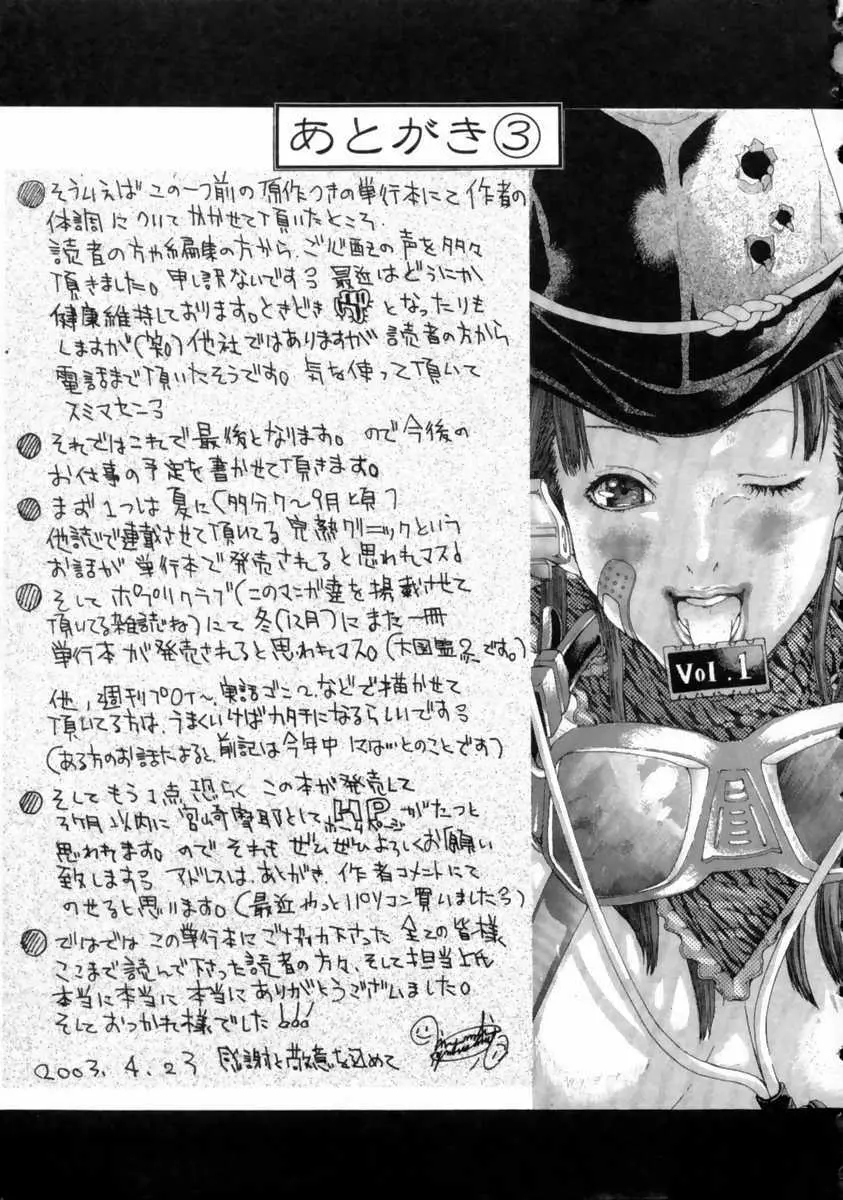 あとがき③
そういえば この一つ前の原作つきの単行本にて 作者の
体調 について かかせて頂いたところ、
読者の方や編集の方から、ご心配の声を多々
頂きました。申し訳ないです 最近はどうにか
健康維持しております。ときどき となったりも
しますが(笑) 他社ではありますが 読者の方から
電話まで頂いたそうです。気を使って頂いて
スミマセン
それではこれで最後となります。ので今後の
お仕事の予定を書かせて頂きます。
まず1つは 夏に(多分7〜9月頃)
他誌で連載させて頂いてる 完熟クリニックという
お話が 単行本で発売されると思われマス
そして ポプリクラブ(このマンガ達を掲載させて
頂いてる雑誌ね)にて 冬(12月)にまた一冊
単行本が発売されると思われマス。(です。)
他、週刊プロイ〜、実話 などで描かせて
頂いてる方は、うまくいけばカタチになるらしいです
(ある方のお話によると、前記は今年中 にはいとのことです)
そしてもう1点、恐らく この本が発売して
3ヶ月以内に 宮崎摩耶として HP ホームページ がたつと
思われます。ので それも ぜひぜひよろしくお願い
致します アドレスは、あとがき、作者コメントにて
のせると思います。(最近やっとパソコン買いました)
ではでは この単行本にご協力下さった 全ての皆様、
ここまで読んで下さった読者の方々、そして担当上氏
本当に本当に 本当にありがとうございました。
そしておつかれ様でした!!!
2003.4.23 感謝と敬意を込めて
Vol.1